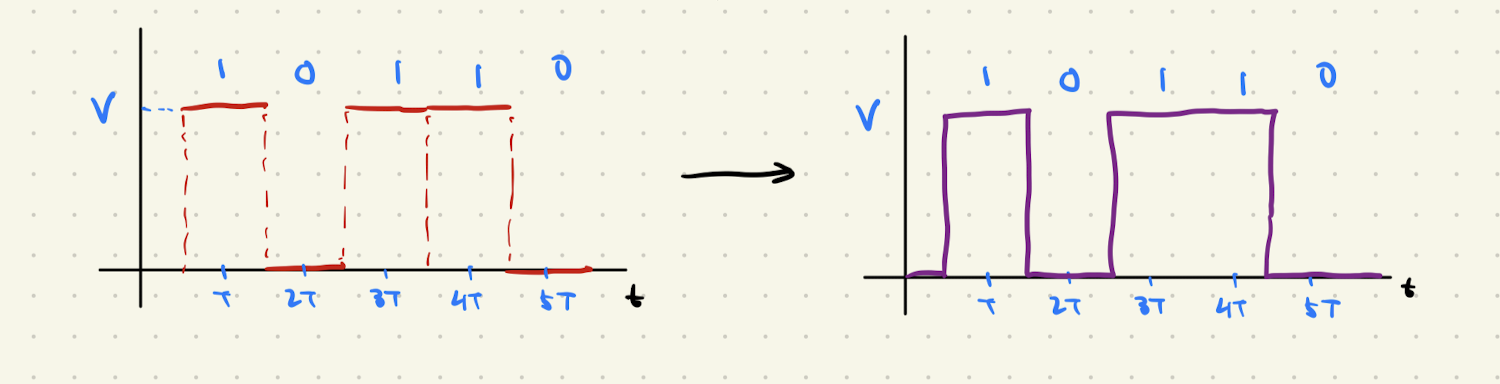 1 0 1 1 0
V
T 2T 3T 4T 5T t
1 0 1 1 0
V
T 2T 3T 4T 5T t